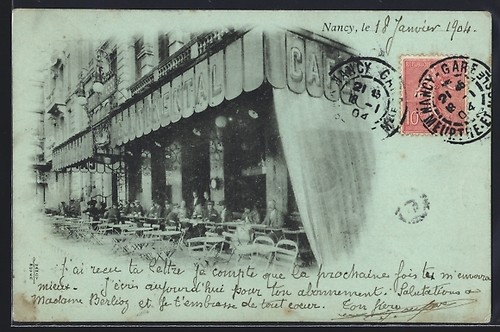 Nancy, le 18 Janvier 1904.
CAFÉ
NANCY-GARE
21
18-1
04
NANCY-GARE
18-1
04
MEURTHE-ET-
10
J'ai reçu ta lettre. Je compte que la prochaine fois tu m'enverras
mieux. J'écris aujourd'hui pour ton abonnement. Salutations à
Madame Berlioz et je t'embrasse de tout coeur. Ton frère